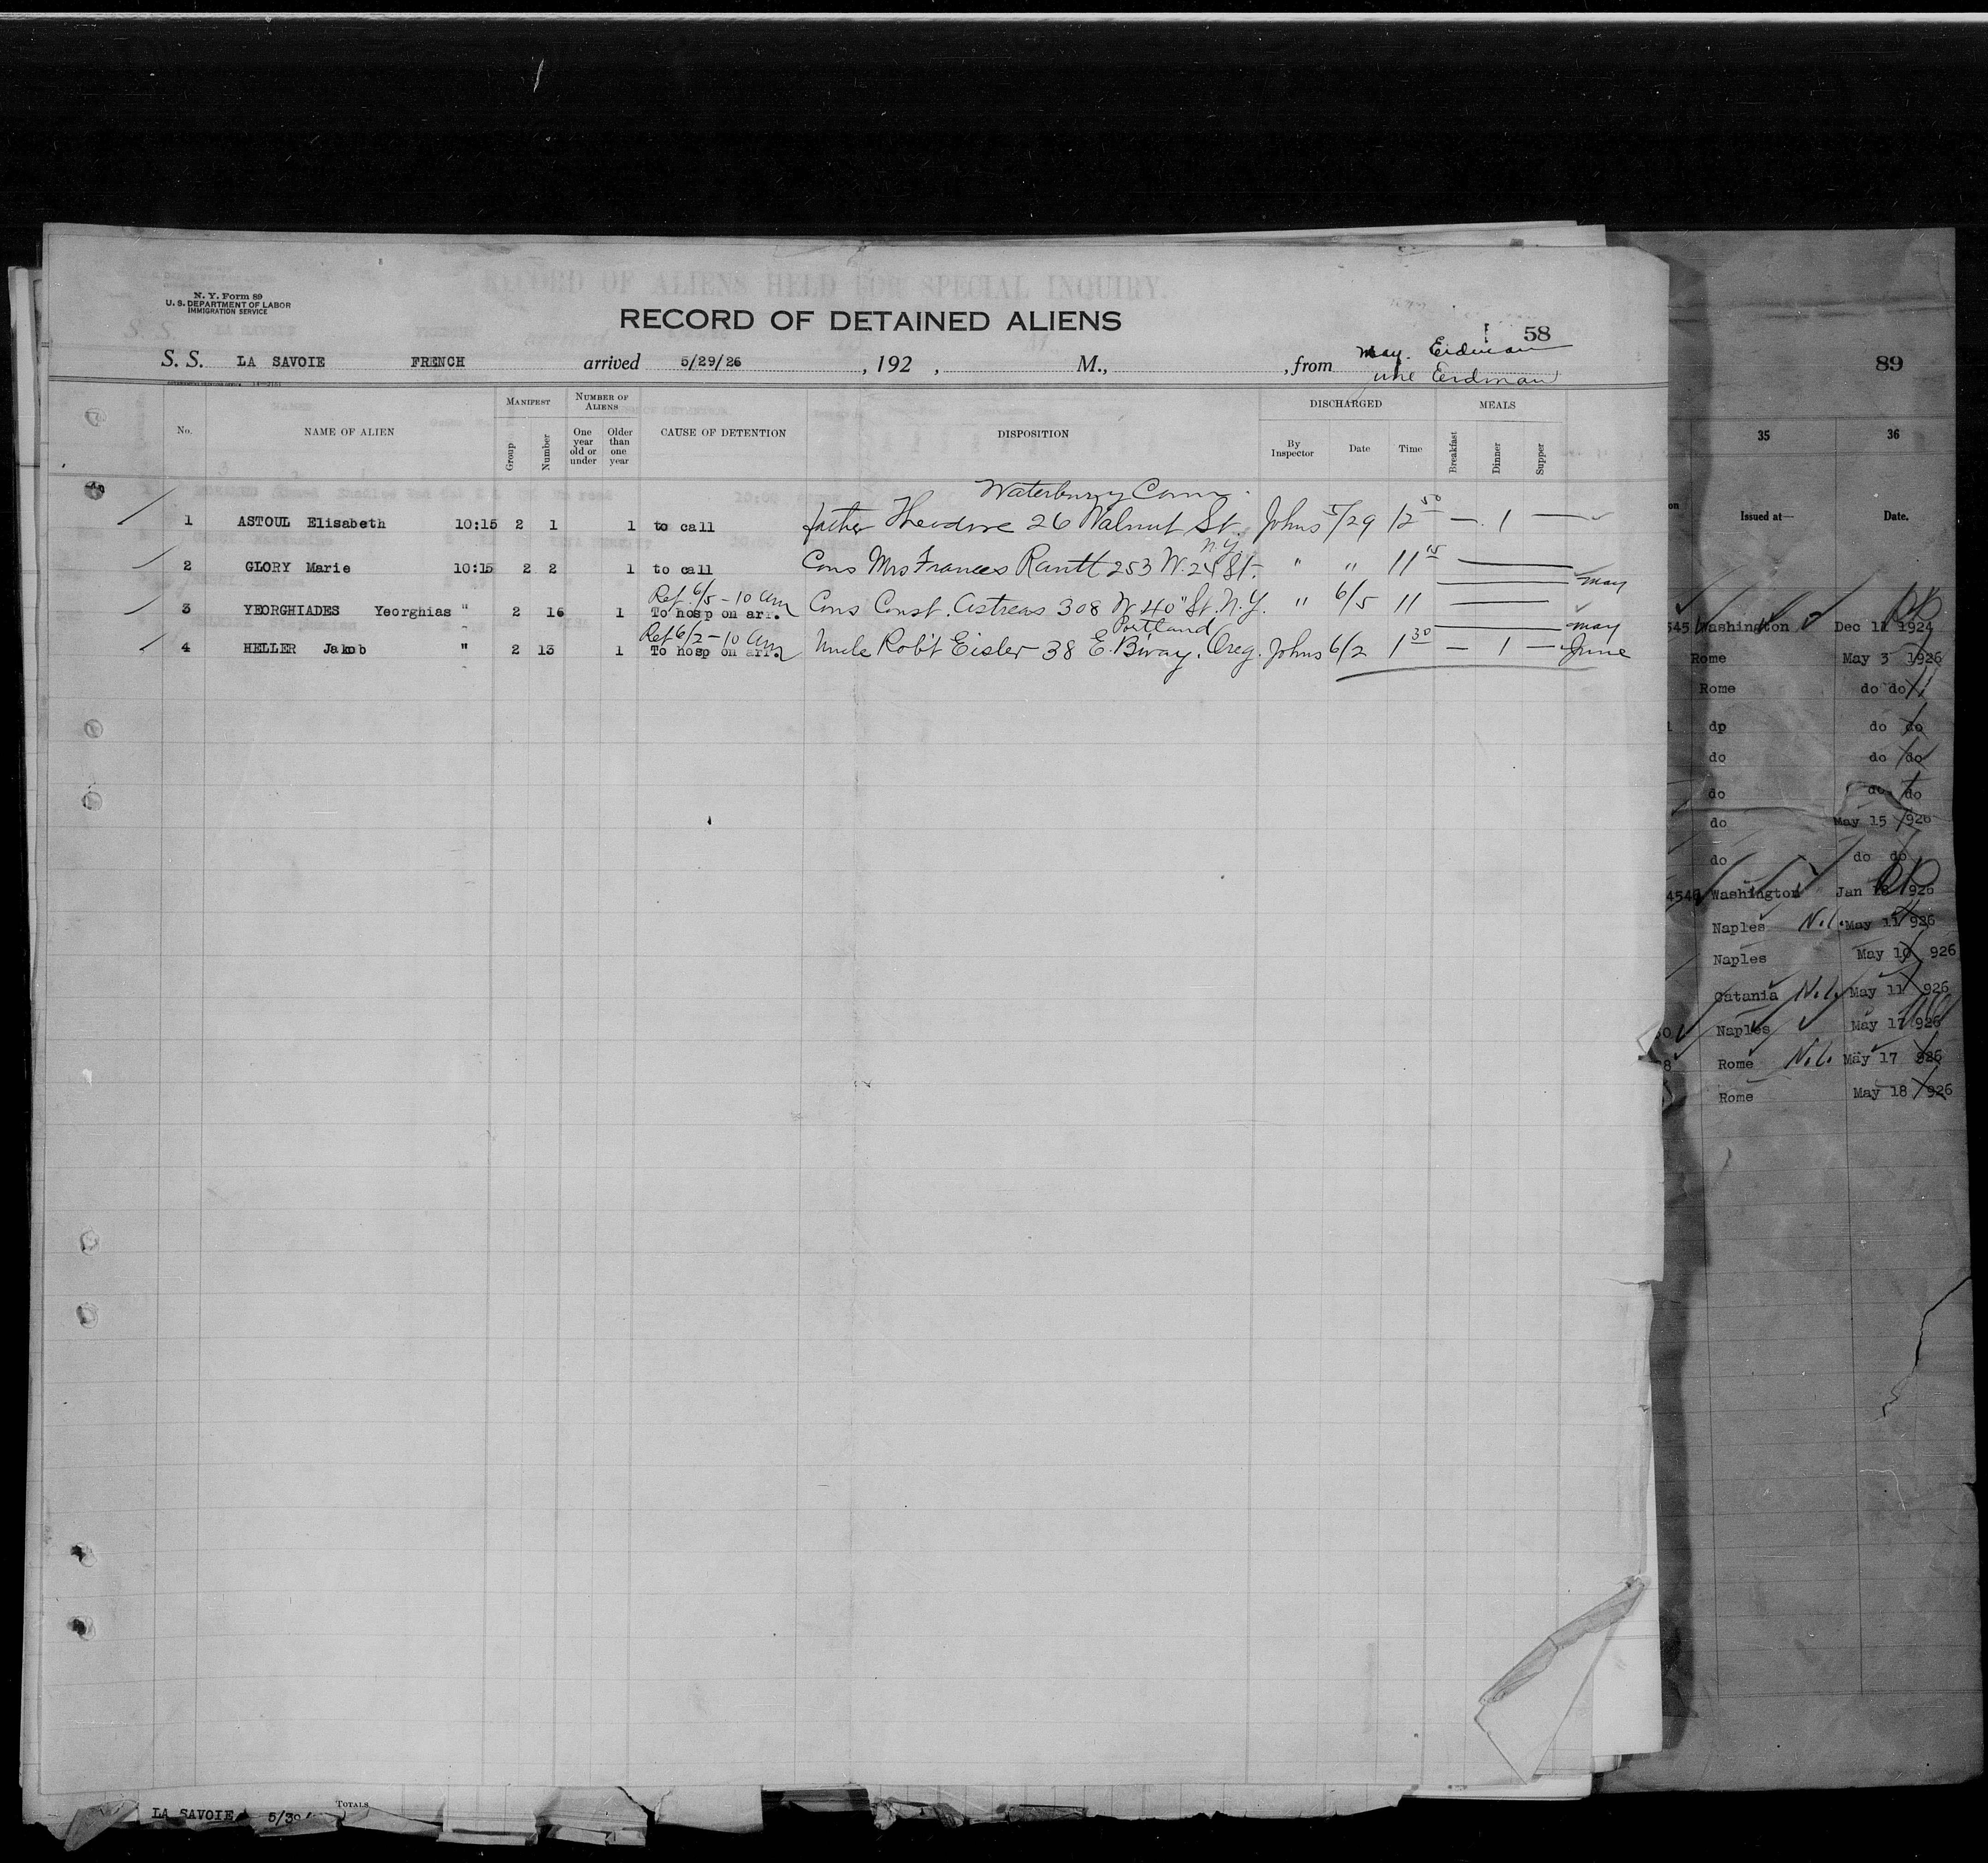 N. Y. Form 89
U. S. DEPARTMENT OF LABOR
IMMIGRATION SERVICE
RECORD OF ALIENS HELD FOR SPECIAL INQUIRY.
RECORD OF DETAINED ALIENS
58
S. S. LA SAVOIE FRENCH arrived 5/29/26, 192 , M., , from May. Erdman
June Erdman
No. NAME OF ALIEN MANIFEST Group Number NUMBER OF ALIENS One year old or under Older than one year CAUSE OF DETENTION DISPOSITION DISCHARGED By Inspector Date Time MEALS Breakfast Dinner Supper
Waterbury Conn.
1 ASTOUL Elisabeth 10:15 2 1 1 to call father Theodore 26 Walnut St. Johns 5/29 12 50 — 1 —
N.Y.
2 GLORY Marie 10:15 2 2 1 to call Cons Mrs Frances 253 W. 24 St. " " 11 15 —
May
Ref. 6/5 - 10 am
3 YEORGHIADES Yeorghias " 2 16 1 To hosp on arr. Cons Const. Astreas 308 W 40" St. N.Y. " 6/5 11 —
May
Ref 6/2 - 10 am Portland
4 HELLER Jakob " 2 13 1 To hosp on arr. Uncle Rob't Eisler 38 E. B'way. Oreg. Johns 6/2 1 30 — 1 — June
TOTALS
LA SAVOIE 5/30
89
35 36
Issued at— Date.
545 Washington Dec 11 1924
Rome May 3 1926
Rome do do
do do do
do do do
do do do
do May 15 926
do do do
4546 Washington Jan 18 926
Naples N.L. May 11 926
Naples May 10 926
Catania N.L. May 11 926
Naples May 17 926
Rome N.L. May 17 926
Rome May 18 926